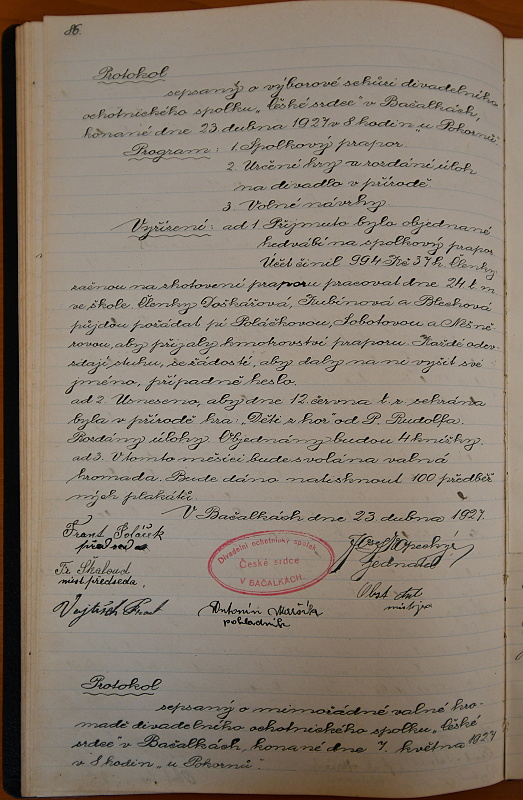 86.
Protokol
sepsaný o výborové schůzi divadelního
ochotnického spolku „České srdce" v Bačalkách,
konané dne 23. dubna 1927 v 8 hodin „u Pokornů".
Program: 1. Spolkový prapor.
2. Určení hry a rozdání úloh
na divadlo v přírodě.
3. Volné návrhy.
Vyřízení: ad 1. Přijmuto bylo objednané
hedvábí na spolkový prapor
Účet činil 994 Kč 37 h. Členky
začnou na zhotovení praporu pracovat dne 24. t. m.
ve škole. Členky Doškářová, Kubínová a Blechová
půjdou požádat pí Poláčkovou, Sobotovou a
rovou, aby přijaly kmotrovství praporu. Každé odev-
zdají stuhu, se žádostí, aby daly na ni vyšít své
jméno, případně heslo.
ad 2. Usneseno, aby dne 12. června t. r. sehrána
byla v přírodě hra: „Děti z hor" od P. Rudolfa.
Rozdány úlohy. Objednány budou 4 knížky.
ad 3. V tomto měsíci bude svolána valná
hromada. Bude dáno natisknout 100 předběž
ných plakátů.
V Bačalkách dne 23. dubna 1927.
Frant Poláček
předseda
Fr. Skaloud
místpředseda.
Divadelní ochotnický spolek
České srdce
V BAČALKÁCH.
Jednatel
Vojtěch
Antonín Maršík
pokladník
Protokol
sepsaný o mimořádné valné hro-
madě divadelního ochotnického spolku „České
srdce" v Bačalkách, konané dne 7. května 1927
v 8 hodin „u Pokornů".